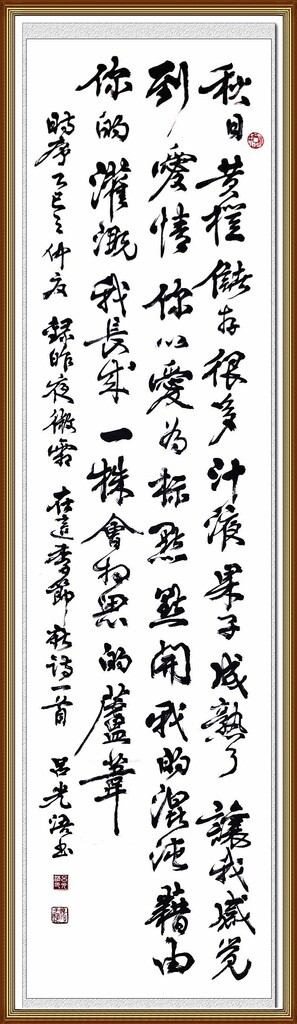 秋日 黄橙 儲存很多汁液 果子成熟了 讓我感覺
到愛情 你以愛為標點 點開我的混沌 藉由
你的灌溉 我長成 一株會相思的蘆葦
時序乙巳之仲夜 錄昨夜微霜 在這季節 新詩一首 呂光浯書